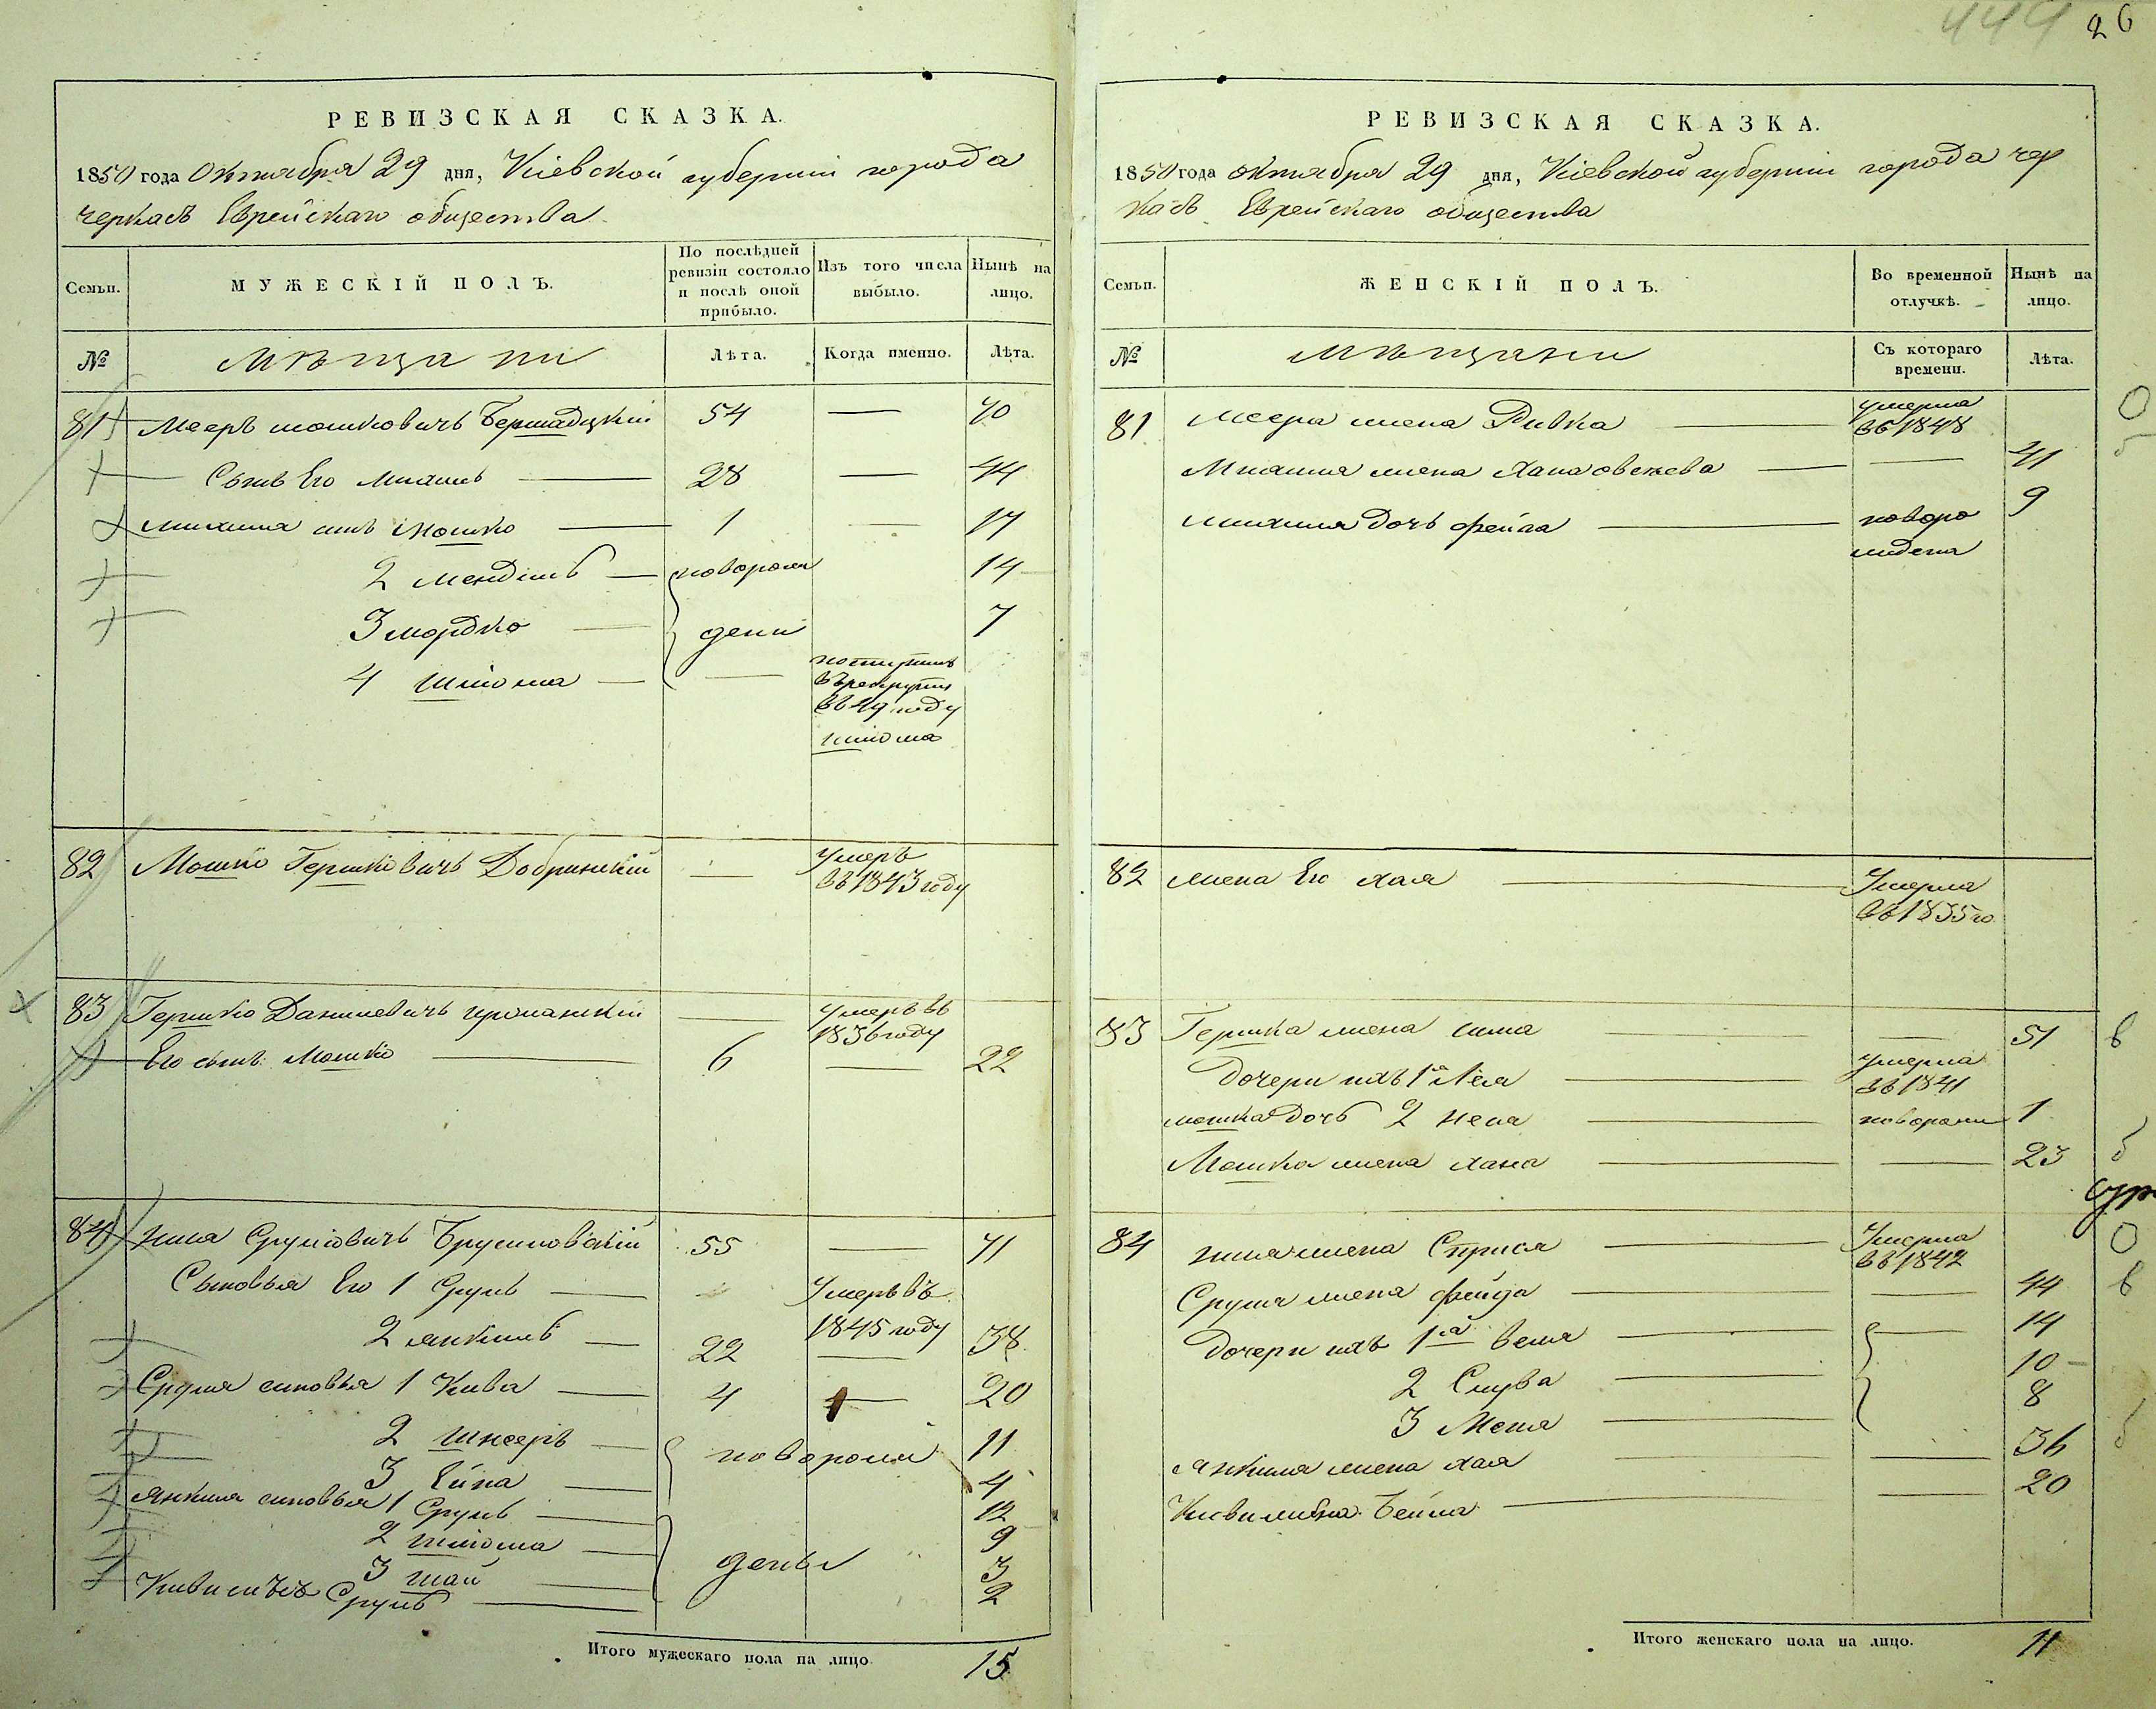 449 26
РЕВИЗСКАЯ СКАЗКА.
1850 года Октября 29 дня, Кіевской губерніи города
черкасъ Еврейскаго общества
Семьи.
МУЖЕСКІЙ ПОЛЪ.
По послѣдней ревизіи состояло и послѣ оной прибыло.
Изъ того числа выбыло.
Нынѣ на лицо.
№ Мѣщани Лѣта. Когда именно. Лѣта.
81 Мееръ мошковичъ Бершадцкій 54 — 70
Сынъ Его Михиль — 28 — 44
михиля сынъ мошко — 1 — 17
2 мендиль — новорож 14
3 мордко — дени 7
4 шлiома — — поступилъ
въ рекруты
въ 49 году
шлiома
82 Мошко Гершковичъ Добринскій — умеръ
въ 1843 году
83 Гершко Данилевичъ — умеръ въ
1836 году
Его сынъ Мошко — 6 — 22
84 Срулiовичъ Брусиловскій 55 — 71
Сыновья Его 1 Сруль — Умеръ въ
1845 году
2 янкиль — 22 — 38
Сруля сыновья 1 Кива — 4 — 20
2 — новорож 11
3 — 4
Янкиля сыновья 1 Сруль — 12
2 шлiома — 9
3 шая — дены 3
Киви сынъ Сруль — 2
Итого мужескаго пола на лицо 15
РЕВИЗСКАЯ СКАЗКА.
1850 года октября 29 дня, Кіевской губерніи города чер
касъ Еврейскаго общества
Семьи.
ЖЕНСКІЙ ПОЛЪ.
Во временной отлучкѣ.
Нынѣ на лицо.
№ Мѣщани Съ котораго времени. Лѣта.
81 меера жена Ривка — умерла
въ 1848
Михиля жена Хана — — 41
михиля дочь фейга — новоро 9
ждена
82 жена Его хая — Умерла
въ 1835 го
83 Гершка жена сима — 51
Дочери ихъ 1я Лея — умерла
въ 1841
мошка дочь 2 — новорож 1
Мошка жена хана — — 23
84 жена Стрися — Умерла
въ 1842
Сруля жена фейга — — 44
Дочери ихъ 1я — — 14
2 — 10
3 — 8
Янкиля жена хая — — 36
Киви жена Бейла — — 20
Итого женскаго пола на лицо. 11